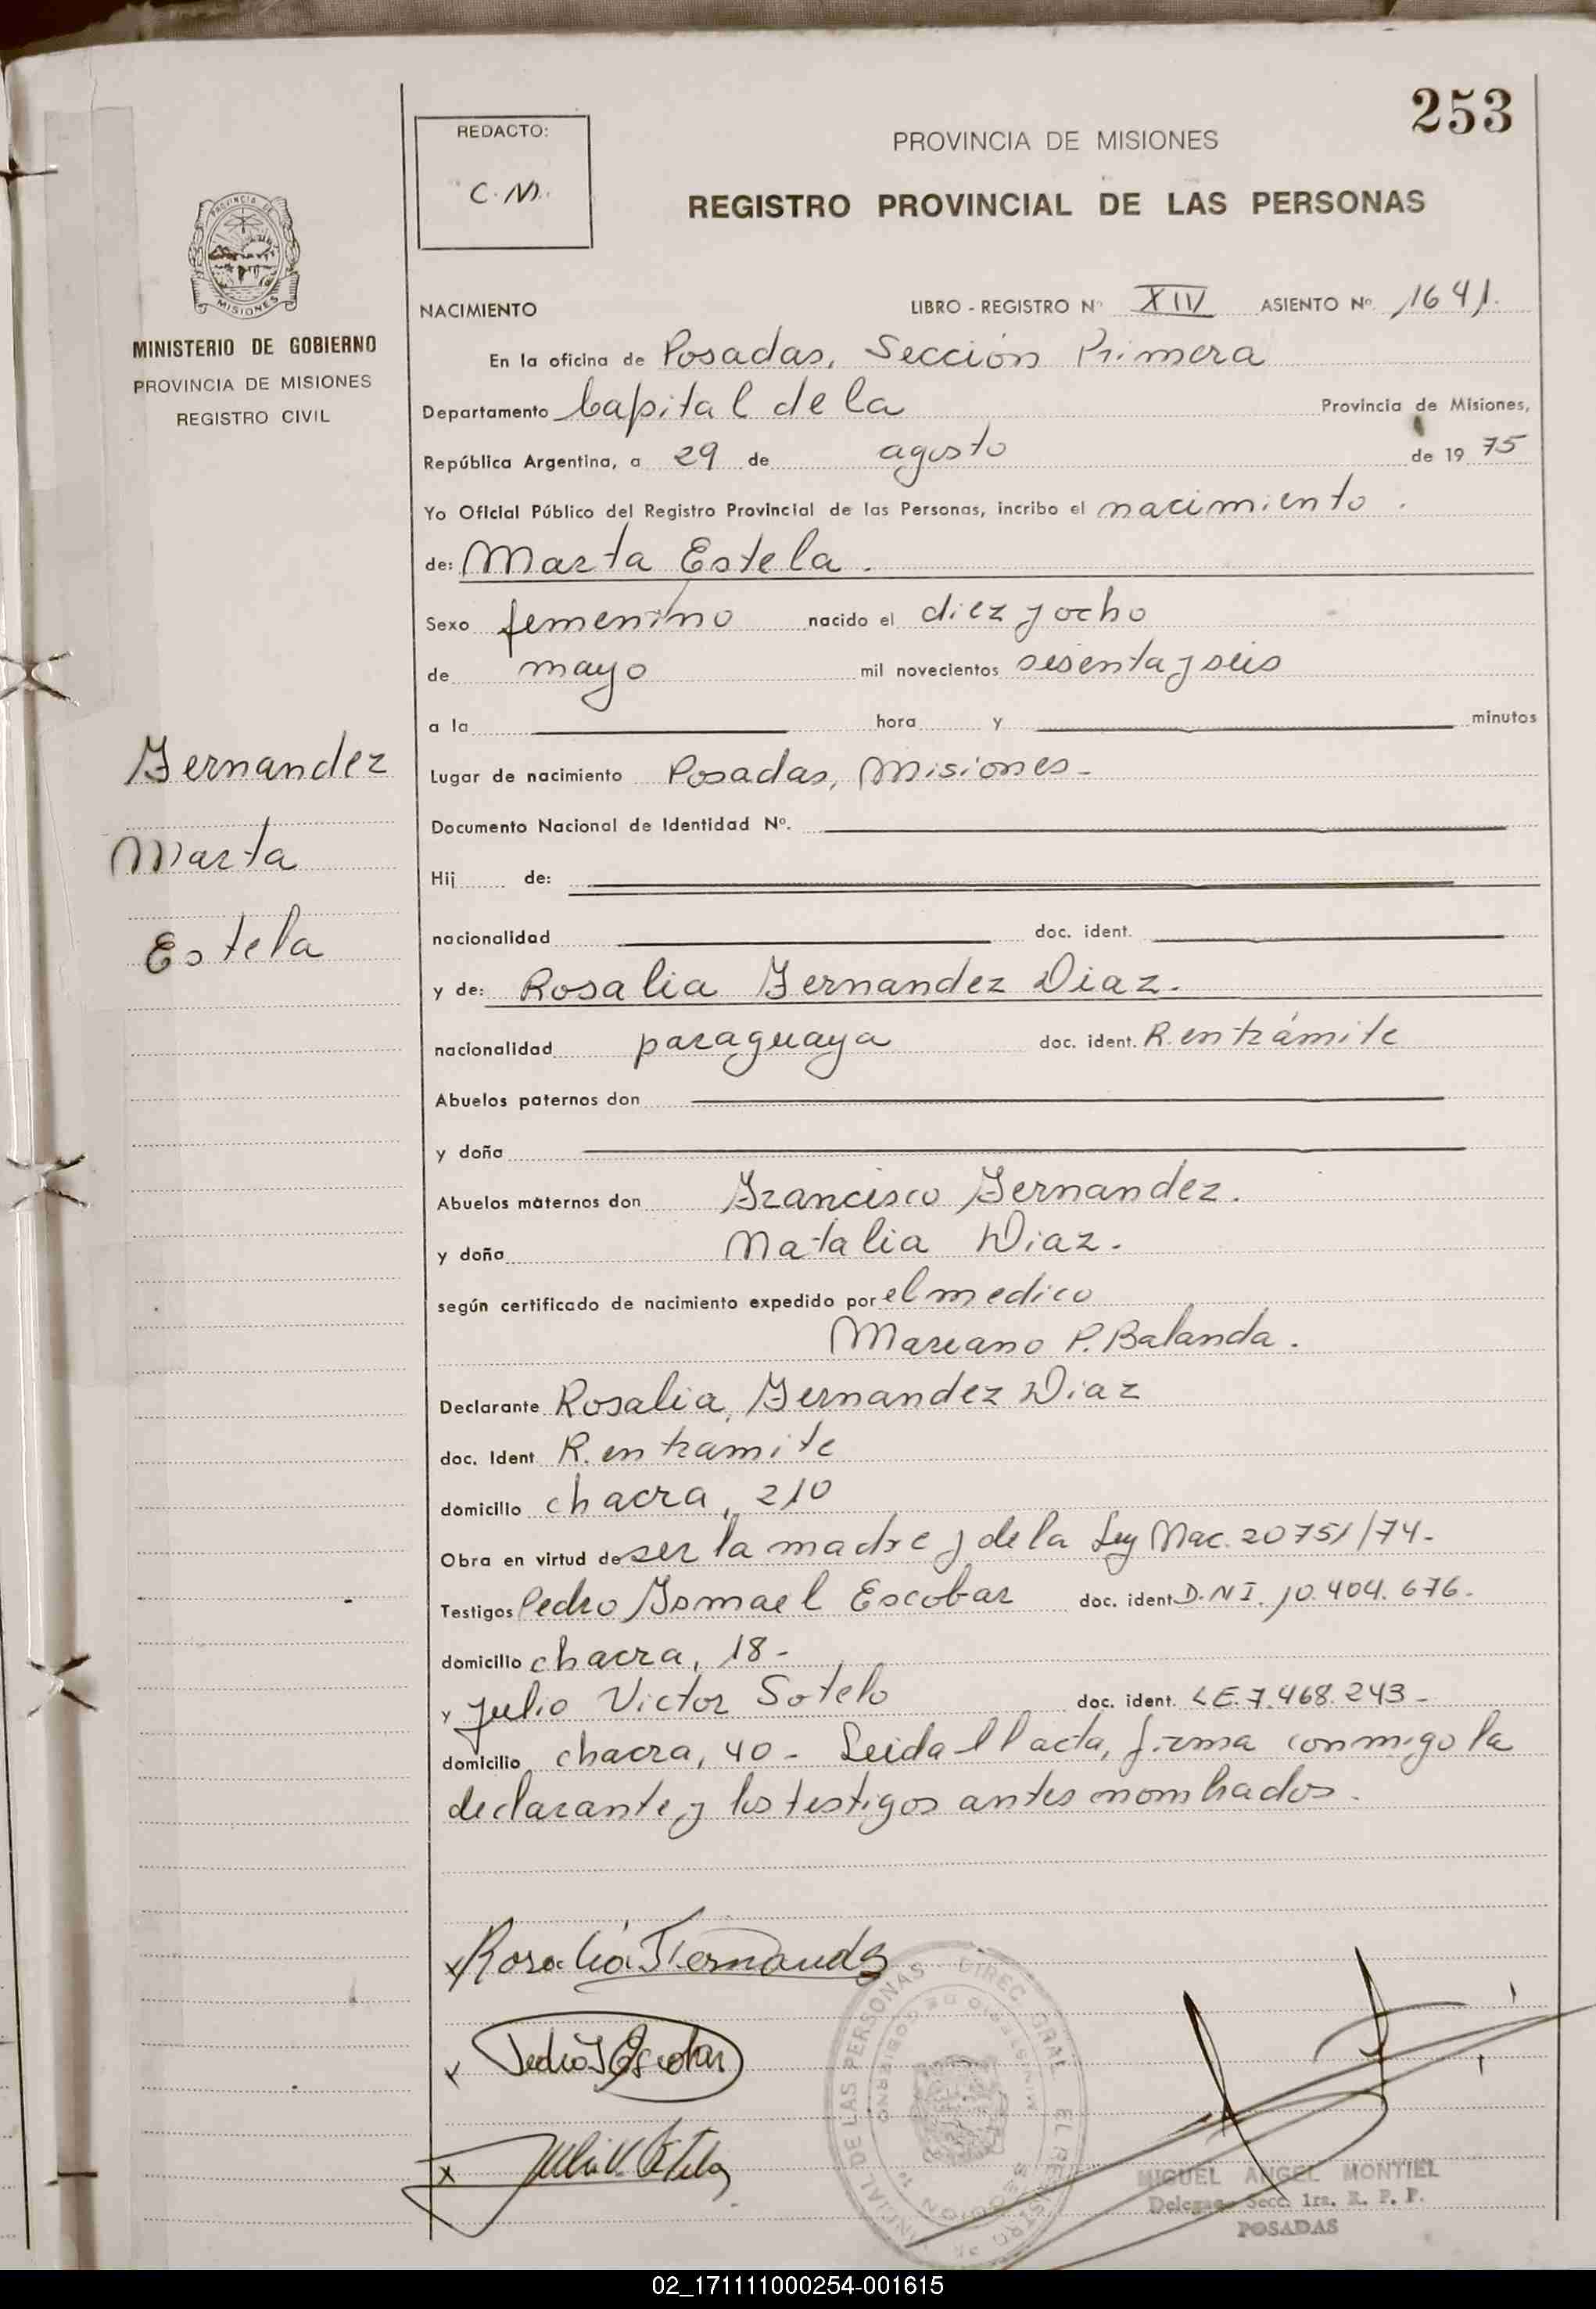 253
REDACTO:
C. M.
PROVINCIA DE MISIONES
REGISTRO PROVINCIAL DE LAS PERSONAS
PROVINCIA DE
MISIONES
MINISTERIO DE GOBIERNO
PROVINCIA DE MISIONES
REGISTRO CIVIL
NACIMIENTO LIBRO - REGISTRO Nº XIV ASIENTO Nº. 1641.
En la oficina de Posadas, Sección Primera
Departamento Capital de la Provincia de Misiones,
República Argentina, a 29 de agosto de 1975
Yo Oficial Público del Registro Provincial de las Personas, incribo el nacimiento.
de: Marta Estela.
Sexo femenino nacido el diez y ocho
de mayo mil novecientos sesenta y seis
a la hora y minutos
Fernandez
Marta
Estela
Lugar de nacimiento Posadas, Misiones-
Documento Nacional de Identidad Nº.
Hij de:
nacionalidad doc. ident.
y de: Rosalia Fernandez Diaz.
nacionalidad paraguaya doc. ident. R. en trámite
Abuelos paternos don
y doña
Abuelos maternos don Francisco Fernandez.
y doña Natalia Diaz.
según certificado de nacimiento expedido por el medico
Mariano P. Balanda.
Declarante Rosalia, Fernandez Diaz
doc. Ident R. en tramite
domicilio chacra, 210
Obra en virtud de ser la madre y de la Ley Nac. 20751/74-
Testigos Pedro Ismael Escobar doc. ident D.N.I. 10.404.676-
domicilio chacra, 18-
y Julio Victor Sotelo doc. ident. L.E. 7.468.243-
domicilio chacra, 40- Leida el acta, firma conmigo la
declarante y los testigos antes nombrados.
x Rosalia Fernandez
x Pedro I Escobar
x Julio V. Sotelo
DIREC. GRAL. EL REGISTRO PROVINCIAL DE LAS PERSONAS
MINISTERIO DE GOBIERNO
SECCION 1ª
MIGUEL ANGEL MONTIEL
Delegado Secc. 1ra. R. P. P.
POSADAS
02_171111000254-001615